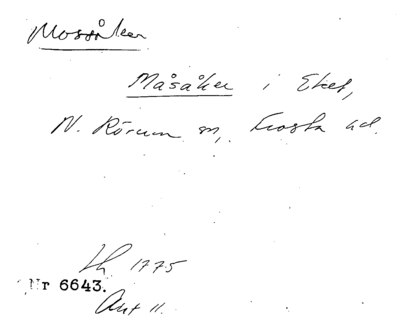 Mossåker
Måsåker i Eket,
N. Rörum sn, Frosta hd.
Lh 1775
Nr 6643.
Akt 11.